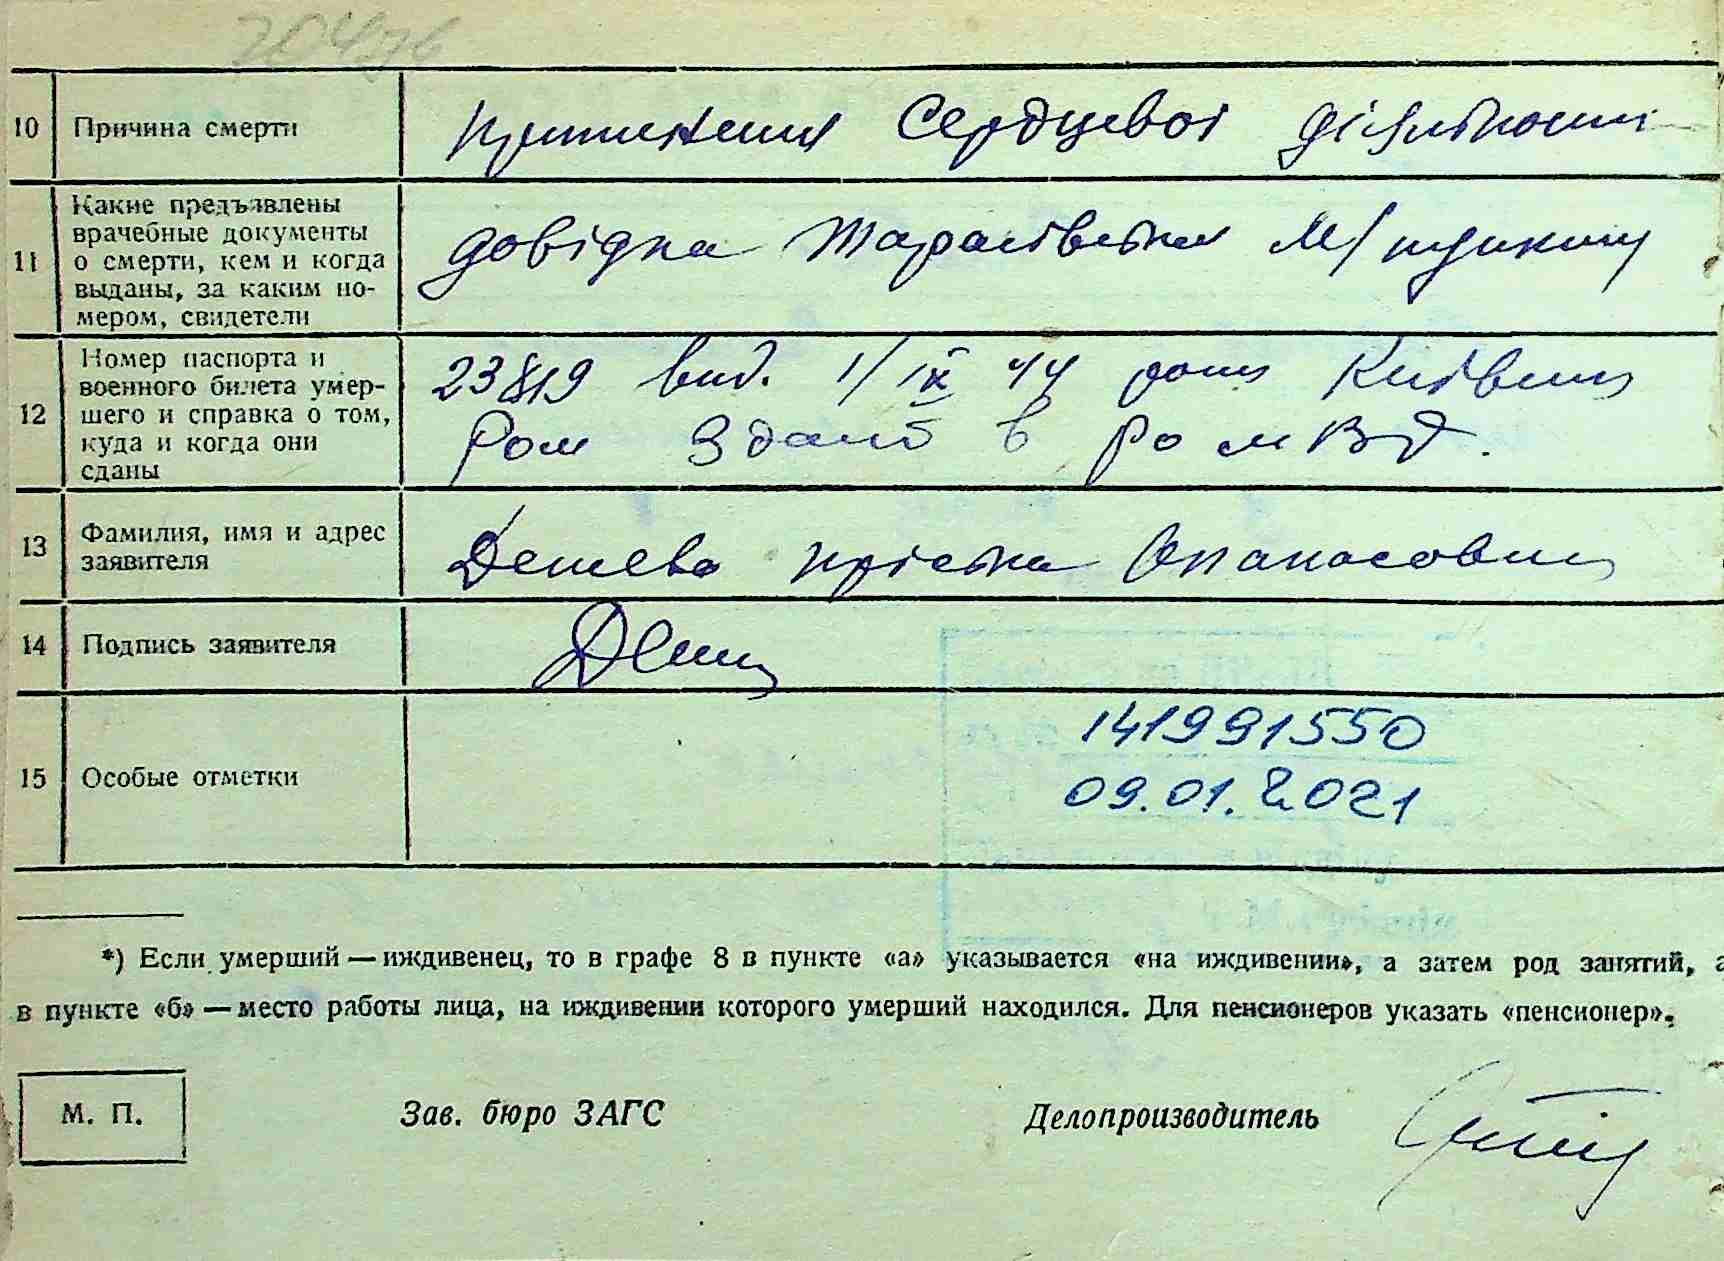 10 Причина смерти
припинення Сердцевої діяльности
11 Какие предъявлены
врачебные документы
о смерти, кем и когда
выданы, за каким но-
мером, свидетели
довідка Тарасівським М/пункту
12 Номер паспорта и
военного билета умер-
шего и справка о том,
куда и когда они
сданы
23819 вид. 1/IX 44
Ром Здан в РО МВД.
13 Фамилия, имя и адрес
заявителя
Опанасович
14 Подпись заявителя
15 Особые отметки
141991550
09.01.2021
*) Если умерший — иждивенец, то в графе 8 в пункте «а» указывается «на иждивении», а затем род занятий, а
в пункте «б» — место работы лица, на иждивении которого умерший находился. Для пенсионеров указать «пенсионер».
М. П. Зав. бюро ЗАГС Делопроизводитель